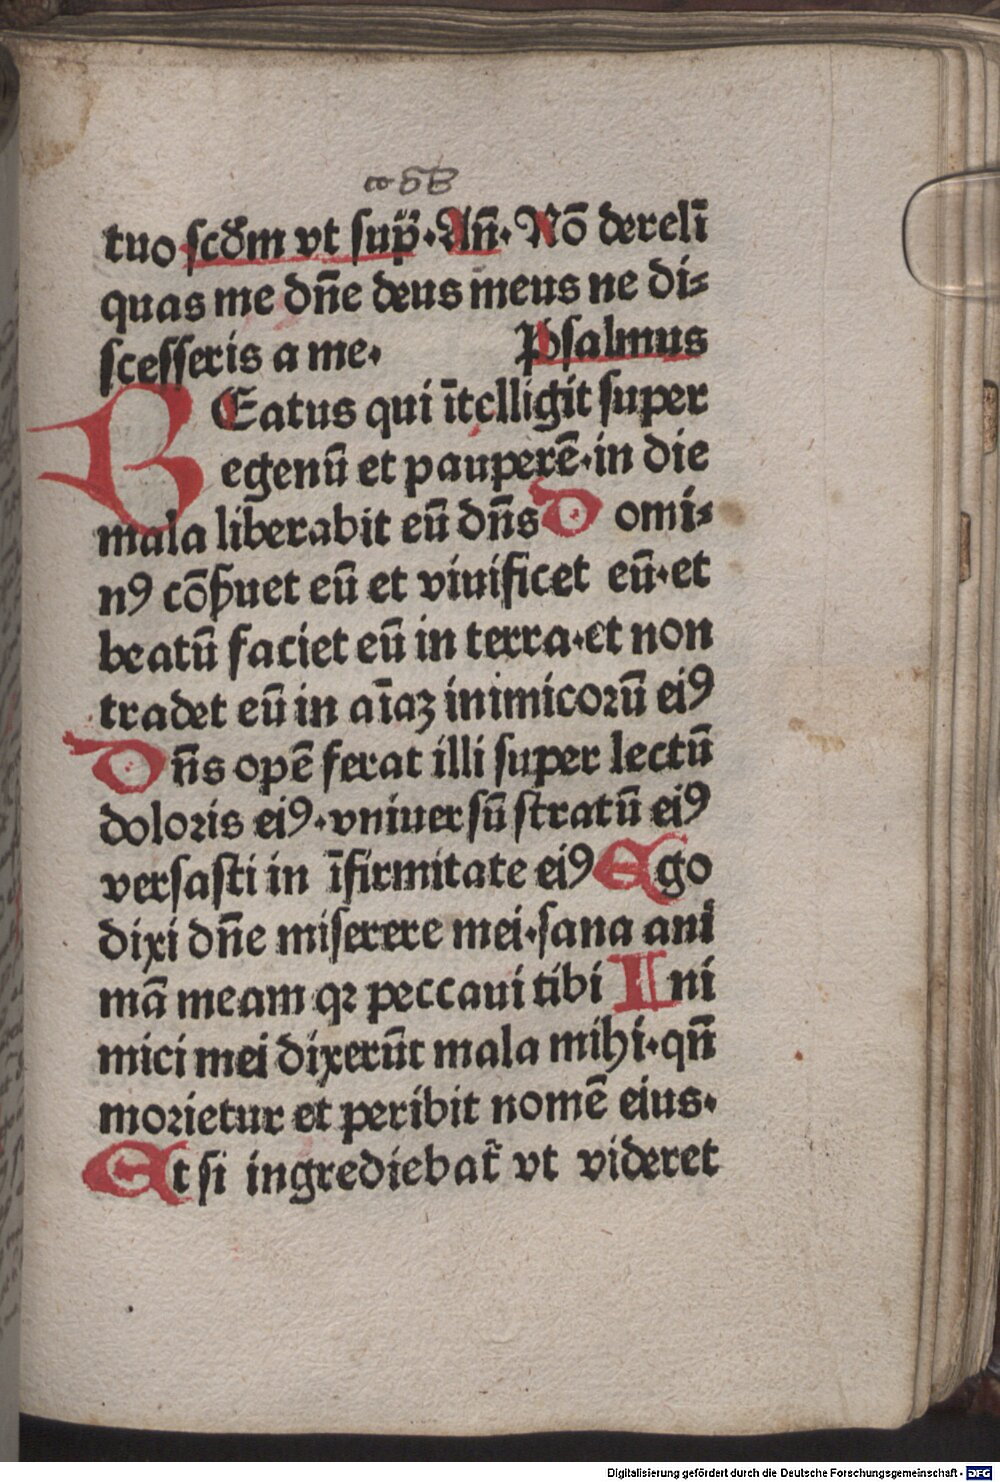 tuo scd̄m vt sup̄·Añ·Nō derelī
quas me dñe deus meus ne di⸗
scesseris a me·
Psalmus
BEatus qui ītelligit super
egenū et pauperē·in die
mala liberabit eū dñs Domi⸗
nꝰ cōẜuet eū et viuificet eū·et
beatū faciet eū in terra·et non
tradet eū in aīaꝫ inimicoꝛū eiꝰ
Dñs opē ferat illi super lectū
doloꝛis eiꝰ·vniuersū stratū eiꝰ
versasti in īfirmitate eiꝰ Ego
dixi dñe miserere mei·sana ani
mā meam qꝛ peccaui tibi Ini
mici mei dixerūt mala mihi·qñ
moꝛietur et peribit nomē eius·
Et si ingrediebat᷑ vt videret
Digitalisierung gefördert durch die Deutsche Forschungsgemeinschaft - DFG